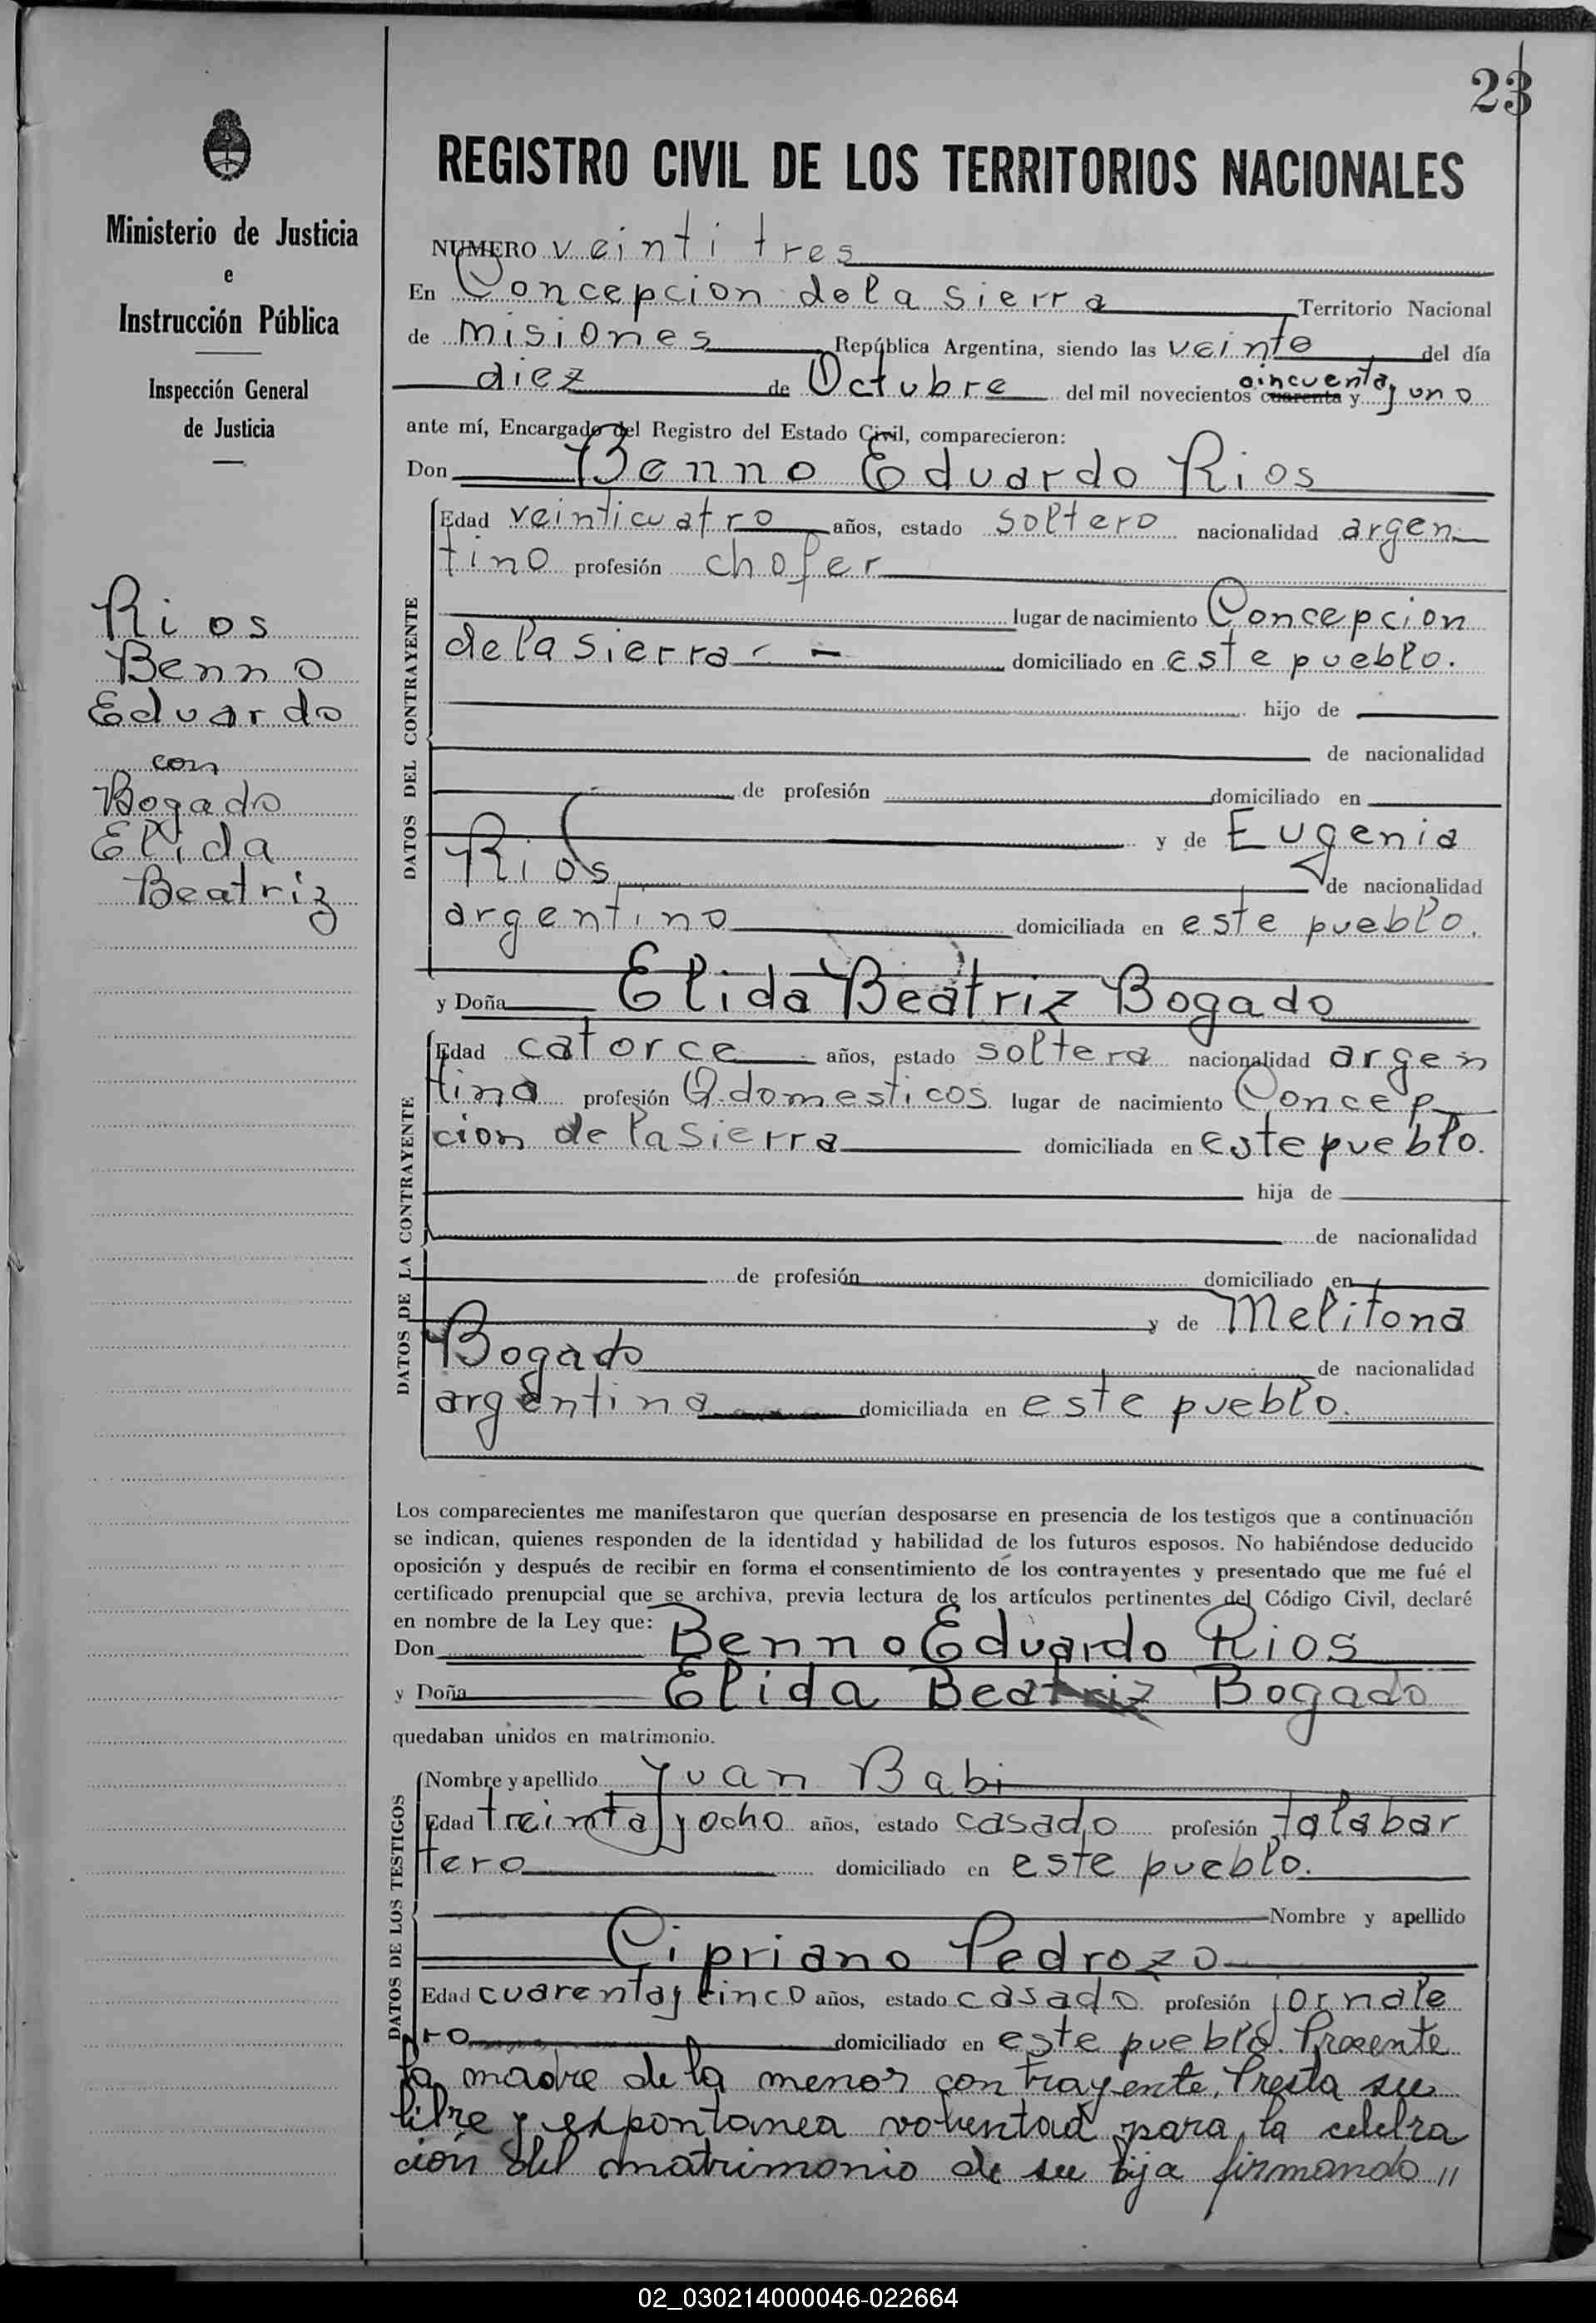 23
REGISTRO CIVIL DE LOS TERRITORIOS NACIONALES
Ministerio de Justicia
e
Instrucción Pública
Inspección General
de Justicia
Rios
Benno
Eduardo
con
Bogado
Elida
Beatriz
NUMERO veinti tres
En Concepcion de la Sierra Territorio Nacional
de Misiones República Argentina, siendo las veinte del día
diez de Octubre del mil novecientos cuarenta cincuenta y y uno
ante mí, Encargado del Registro del Estado Civil, comparecieron:
Don Benno Eduardo Rios
DATOS DEL CONTRAYENTE
Edad veinticuatro años, estado soltero nacionalidad argen
tino profesión chofer
lugar de nacimiento Concepcion
de la Sierra - - domiciliado en este pueblo.
hijo de
de nacionalidad
de profesión domiciliado en
y de Eugenia
Rios de nacionalidad
argentino domiciliada en este pueblo.
y Doña Elida Beatriz Bogado
DATOS DE LA CONTRAYENTE
Edad catorce años, estado soltera nacionalidad argen
tina profesión Q. domesticos lugar de nacimiento Concep
cion de la Sierra domiciliada en este pueblo.
hija de
de nacionalidad
de profesión domiciliado en
y de Melitona
Bogado de nacionalidad
argentina domiciliada en este pueblo.
Los comparecientes me manifestaron que querían desposarse en presencia de los testigos que a continuación
se indican, quienes responden de la identidad y habilidad de los futuros esposos. No habiéndose deducido
oposición y después de recibir en forma el consentimiento de los contrayentes y presentado que me fué el
certificado prenupcial que se archiva, previa lectura de los artículos pertinentes del Código Civil, declaré
en nombre de la Ley que:
Don Benno Eduardo Rios
y Doña Elida Beatriz Bogado
quedaban unidos en matrimonio.
DATOS DE LOS TESTIGOS
Nombre y apellido Juan Babi
Edad treinta y ocho años, estado casado profesión talabar
tero domiciliado en este pueblo.
Nombre y apellido
Cipriano Pedrozo
Edad cuarenta y cinco años, estado casado profesión jornale
ro domiciliado en este pueblo. Presente
la madre de la menor contrayente, Presta su
libre y expontanea voluntad para la celebra
ción del matrimonio de su hija firmando //
02_030214000046-022664